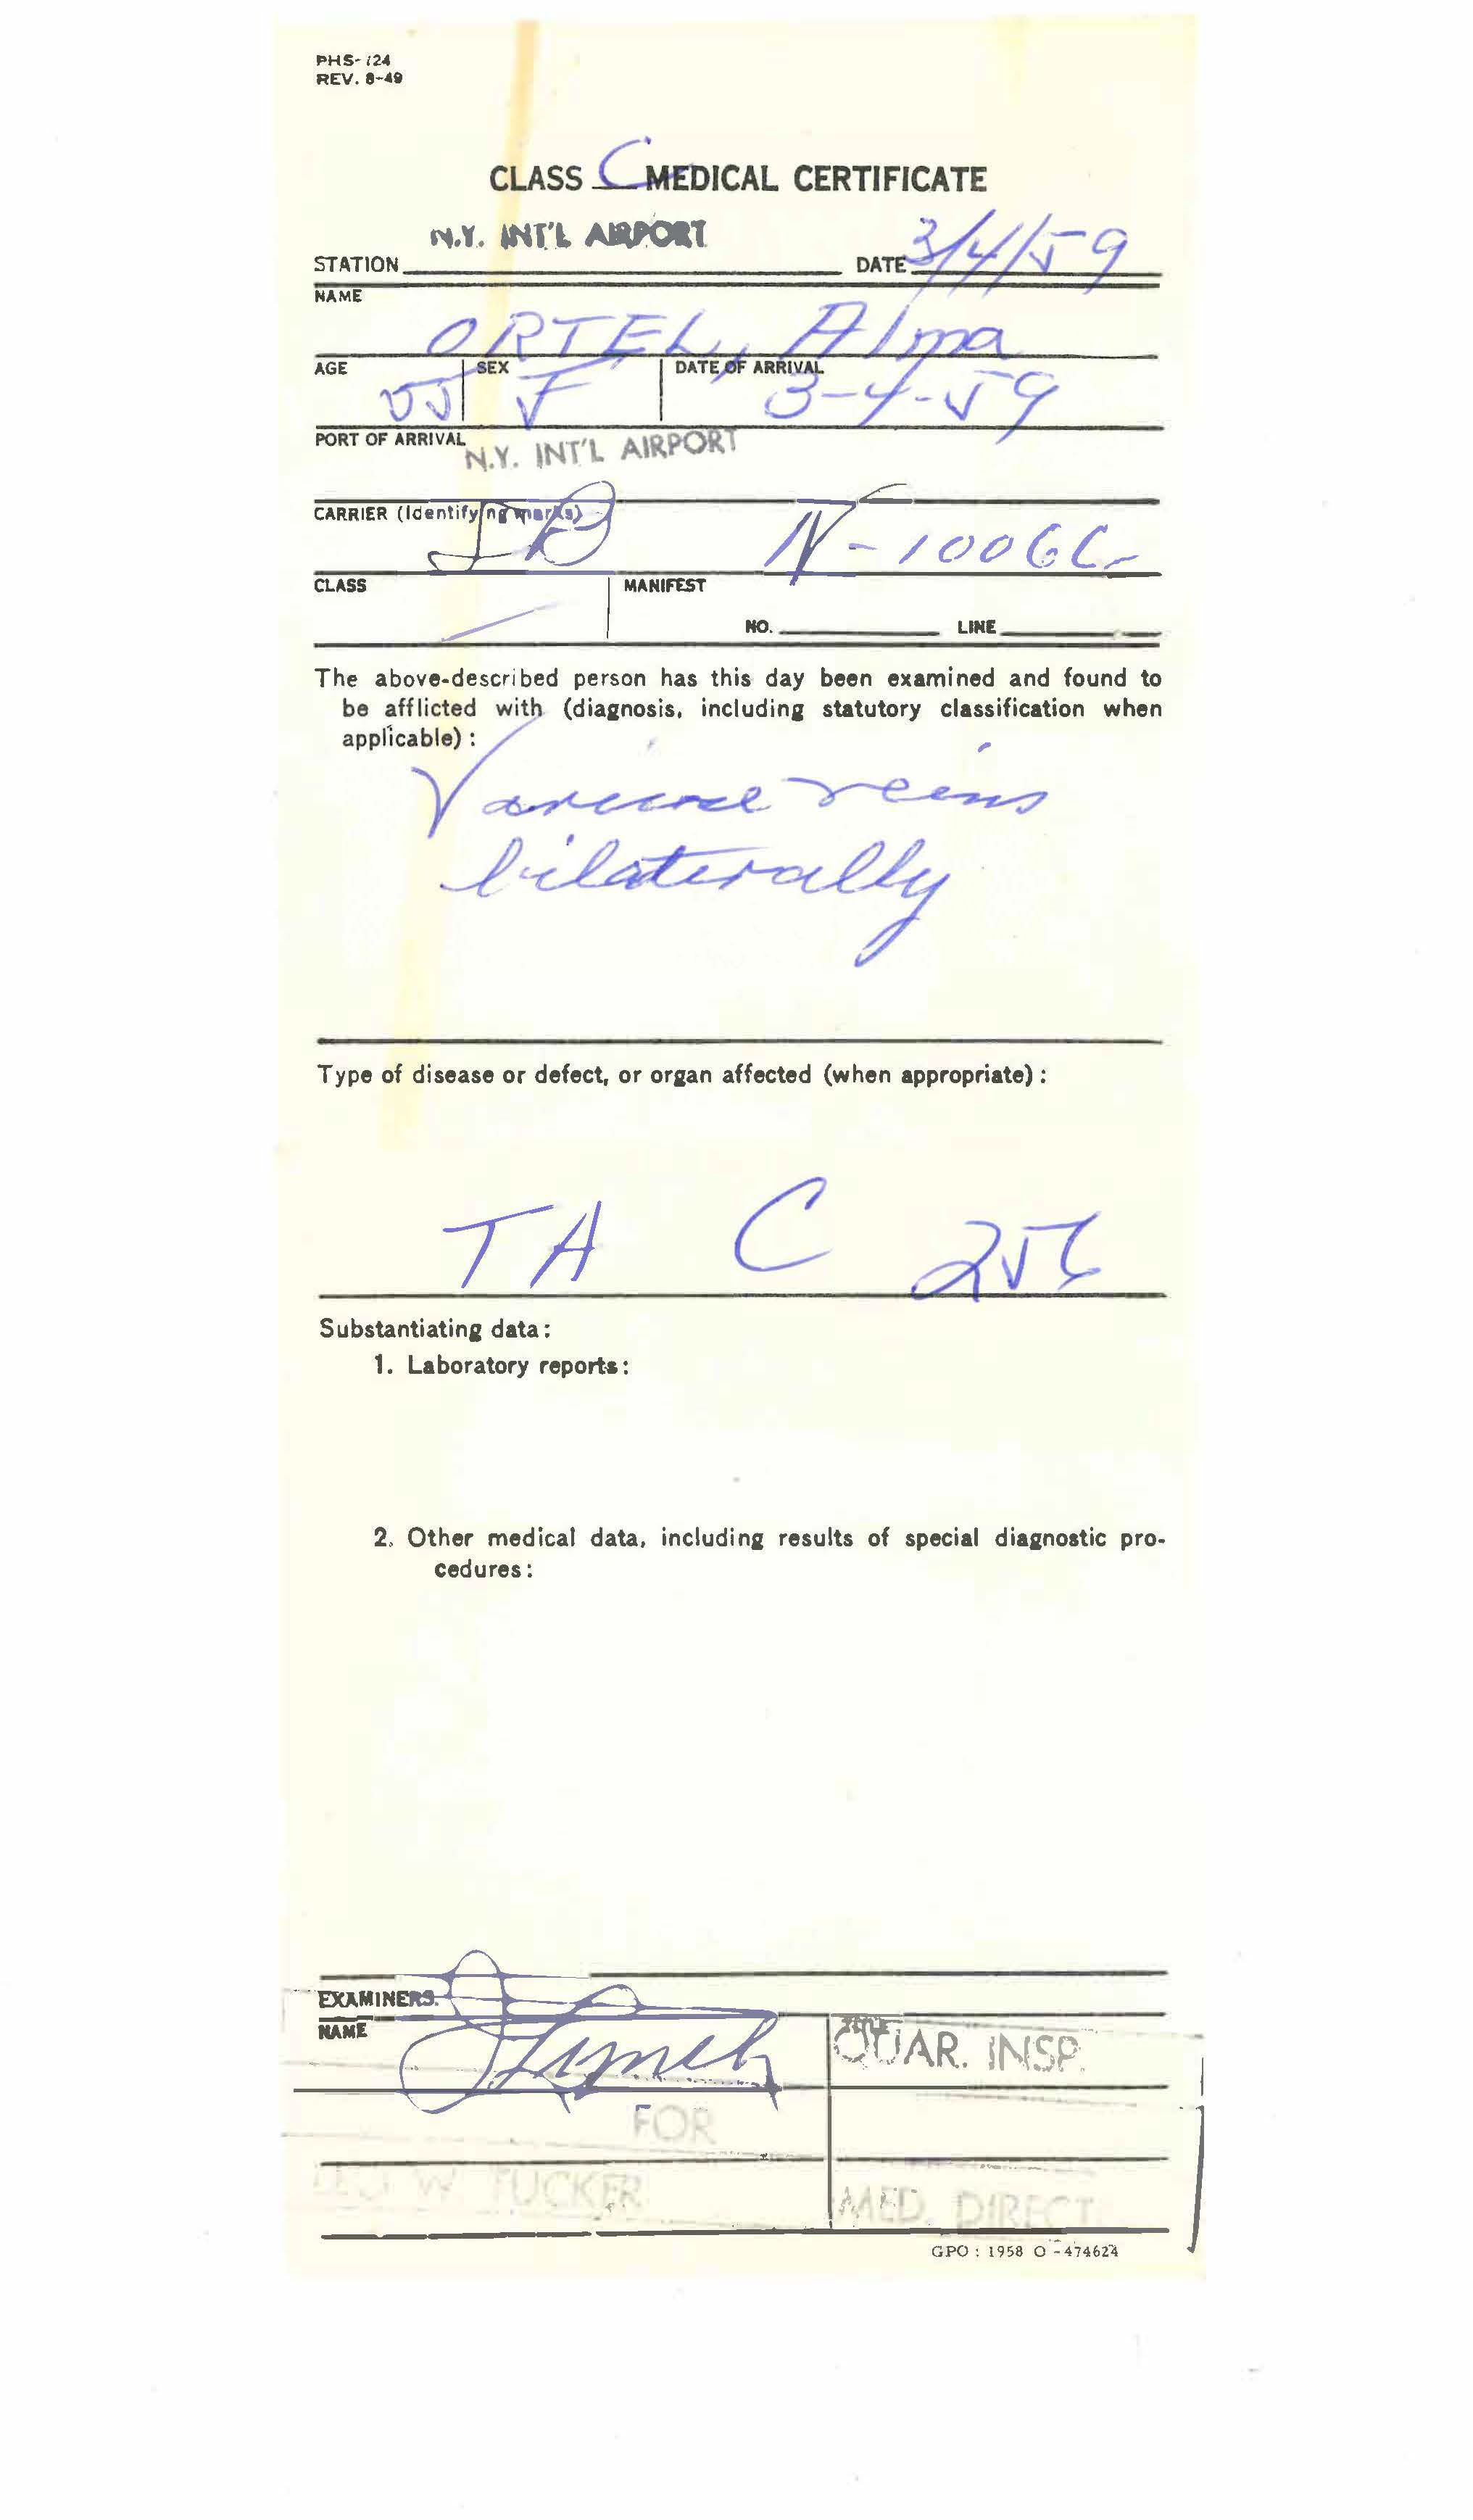 PHS-124
REV. 8-49
CLASS C MEDICAL CERTIFICATE
STATION N.Y. INT'L AIRPORT DATE 3/4/59
NAME
ORTEL, Alma
AGE 55 SEX F DATE OF ARRIVAL 3-4-59
PORT OF ARRIVAL N.Y. INT'L AIRPORT
CARRIER (Identifying marks)
CLASS MANIFEST
NO. LINE
The above-described person has this day been examined and found to
be afflicted with (diagnosis, including statutory classification when
applicable) :
Varicose veins
bilaterally
Type of disease or defect, or organ affected (when appropriate) :
TA C 256
Substantiating data :
1. Laboratory reports :
2. Other medical data, including results of special diagnostic pro-
cedures :
EXAMINERS.
NAME TITLE
Lynch QUAR. INSP.
FOR
W TUCKER MED. DIRECT
GPO : 1958 O - 474624